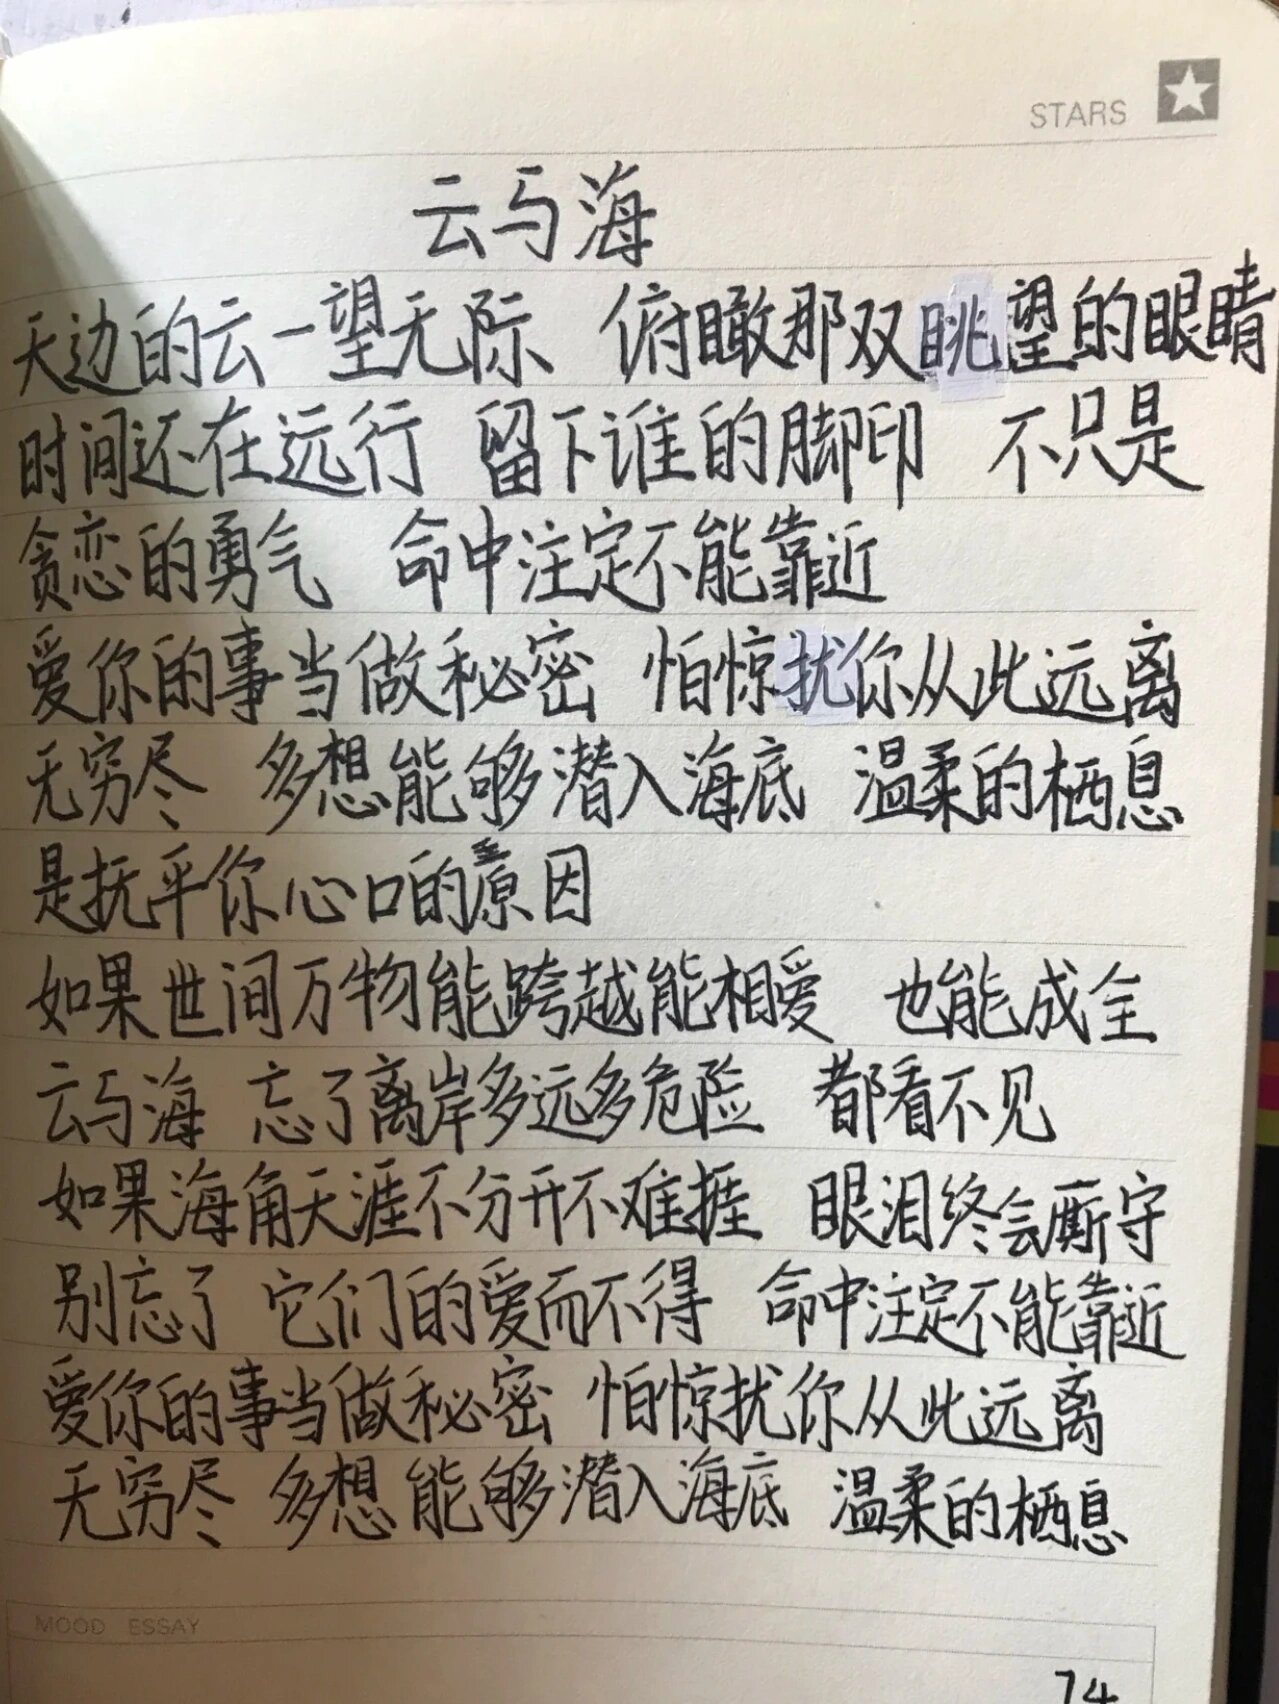 STARS
云与海
天边的云一望无际 俯瞰那双眺望的眼睛
时间还在远行 留下谁的脚印 不只是
贪恋的勇气 命中注定不能靠近
爱你的事当做秘密 怕惊扰你从此远离
无穷尽 多想能够潜入海底 温柔的栖息
是抚平你心口的原因
如果世间万物能跨越能相爱 也能成全
云与海 忘了离岸多远多危险 都看不见
如果海角天涯不分开不难捱 眼泪终会厮守
别忘了 它们的爱而不得 命中注定不能靠近
爱你的事当做秘密 怕惊扰你从此远离
无穷尽 多想能够潜入海底 温柔的栖息
MOOD ESSAY
74